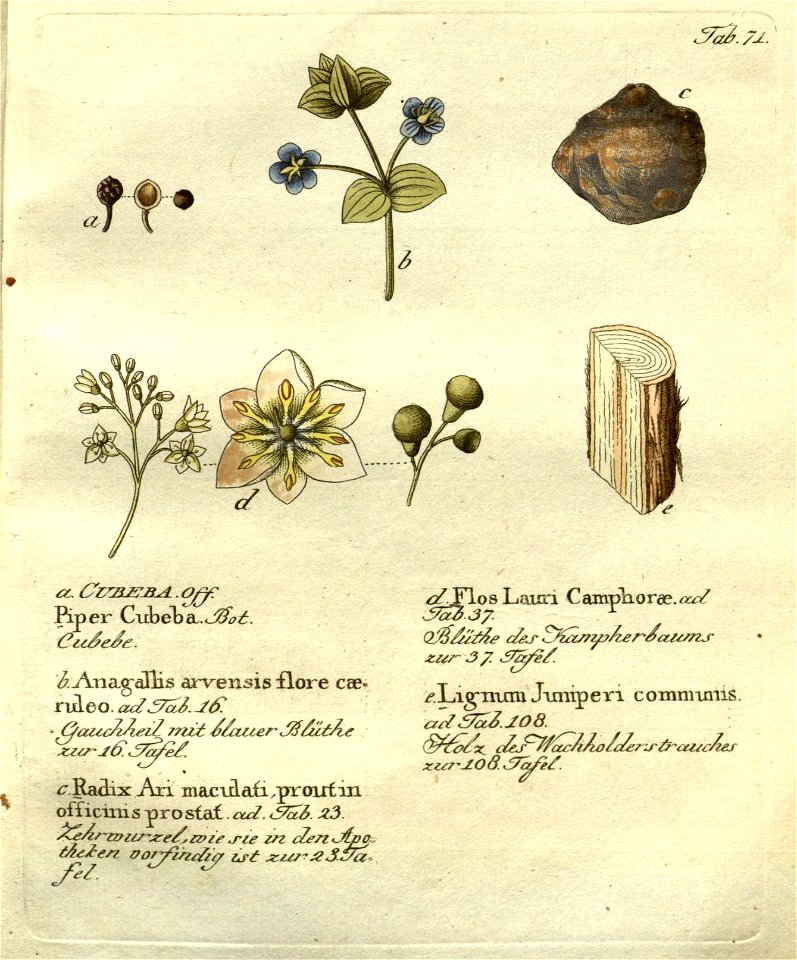 Tab. 71.
c
a
b
d
e
a. CUBEBA. Off.
Piper Cubeba. Bot.
Cubebe.
b. Anagallis arvensis flore cæ-
ruleo. ad Tab. 16.
Gauchheil mit blauer Blüthe
zur 16. Tafel.
c. Radix Ari maculati, prout in
officinis prostat. ad. Tab. 23.
Zehrwurzel, wie sie in den Apo-
theken vorfindig ist zur 23. Ta-
fel.
d. Flos Lauri Camphoræ. ad
Tab. 37.
Blüthe des Kampherbaums
zur 37. Tafel.
e. Lignum Juniperi communis.
ad Tab. 108.
Holz des Wachholderstrauches
zur 108. Tafel.